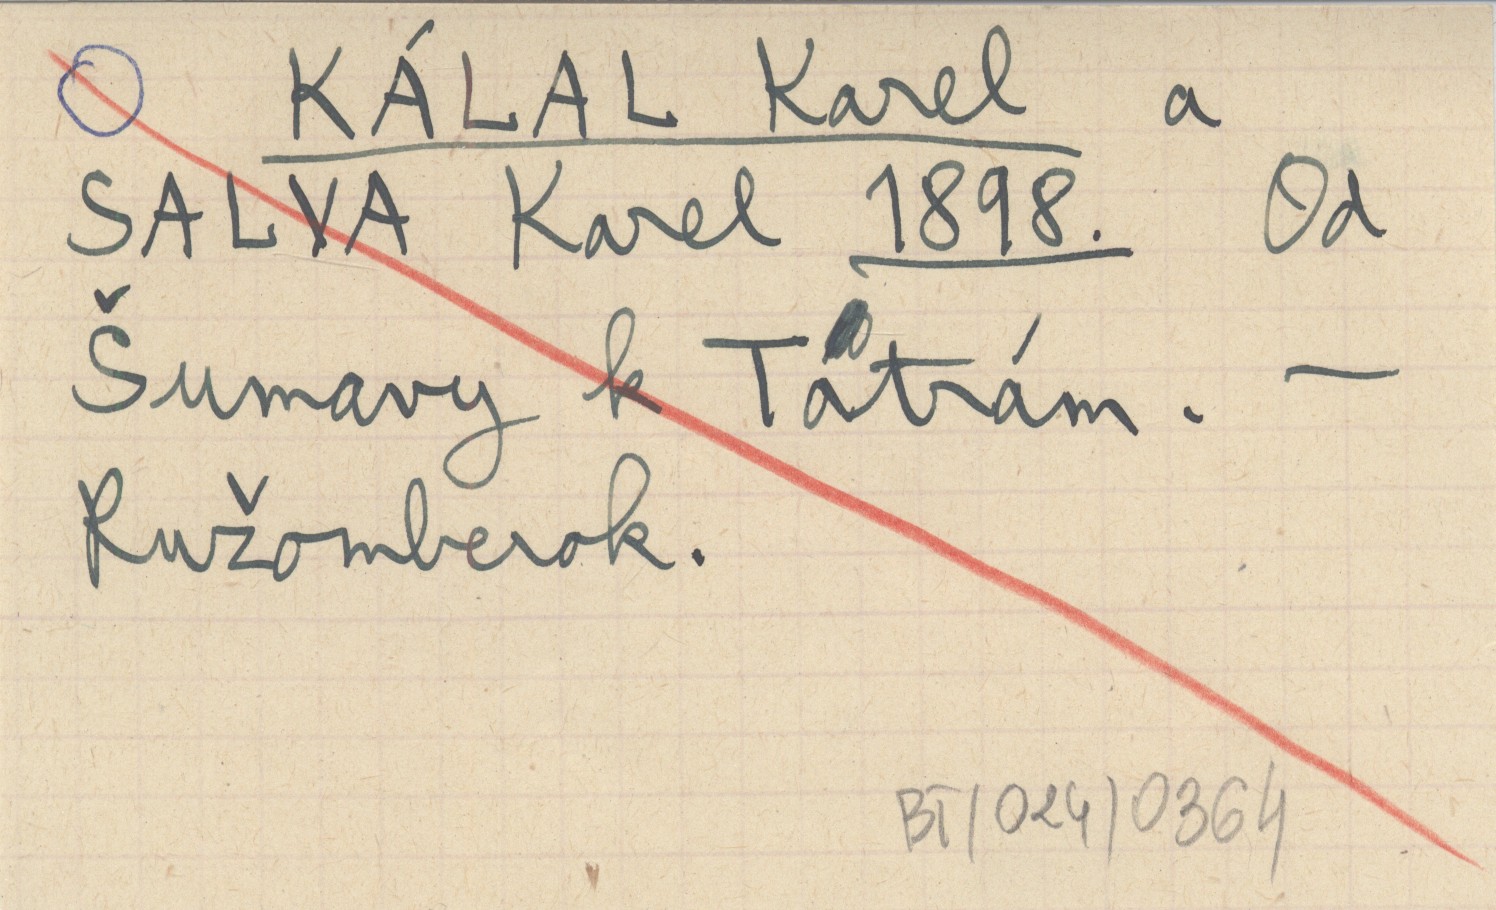 KÁLAL Karel a
SALVA Karel 1898. Od
Šumavy k Tatrám. —
Ružomberok.
BT/024/0364